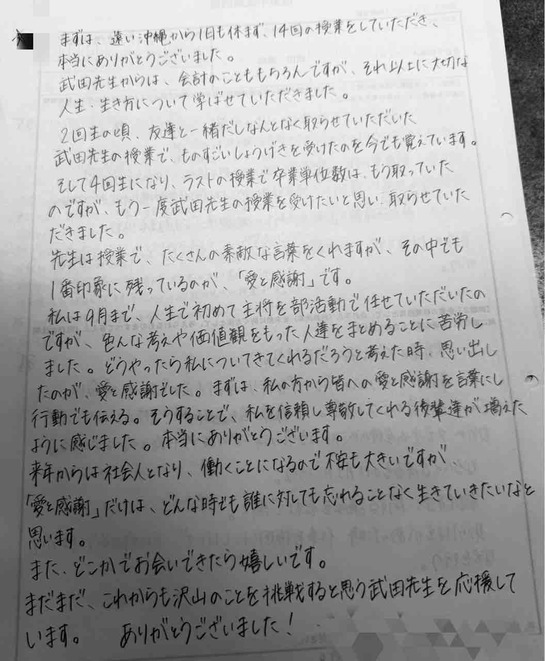 まずは、遠い沖縄から1日も休まず、14回の授業をしていただき、
本当にありがとうございました。
武田先生からは、会計のことももちろんですが、それ以上に大切な
人生・生き方について学ばせていただきました。
2回生の頃、友達と一緒だしなんとなく取らせていただいた
武田先生の授業で、ものすごいしょうげきを受けたのを今でも覚えています。
そして4回生になり、ラストの授業で卒業単位数は、もう取っていた
のですが、もう一度武田先生の授業を受けたいと思い、取らせていた
だきました。
先生は授業で、たくさんの素敵な言葉をくれますが、その中でも
1番印象に残っているのが、「愛と感謝」です。
私は9月まで、人生で初めて主将を部活動で任せていただいたの
ですが、色んな考えや価値観をもった人達をまとめることに苦労し
ました。どうやったら私についてきてくれるだろうと考えた時、思い出し
たのが、愛と感謝でした。まずは、私の方から皆への愛と感謝を言葉にし
行動でも伝える。そうすることで、私を信頼し尊敬してくれる後輩達が増えた
ように感じました。本当にありがとうございます。
来年からは社会人となり、働くことになるので不安も大きいですが、
「愛と感謝」だけは、どんな時も誰に対しても忘れることなく生きていきたいなと
思います。
また、どこかでお会いできたら嬉しいです。
まだまだ、これからも沢山のことを挑戦すると思う武田先生を応援して
います。 ありがとうございました!